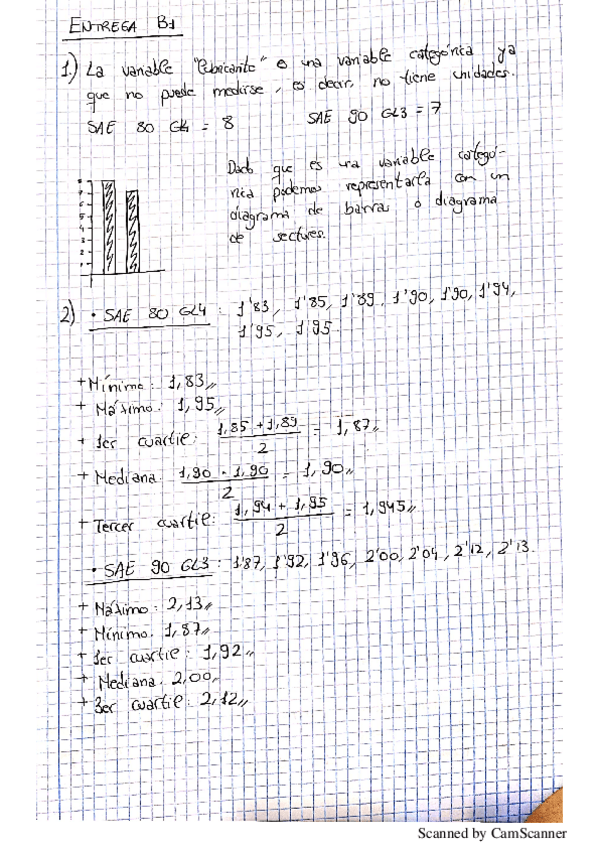 ENTREGA B1
1) La variable "lubricante" e una variable categórica ya
que no puede medirse, es decir, no tiene unidades.
SAE 80 GL4 = 8 SAE 90 GL3 = 7
Dado que es una variable categó-
rica podemos representarla con un
diagrama de barra o diagrama
de sectores.
8
7
6
5
4
3
2
1
2) • SAE 80 GL4 : 1'83, 1'85, 1'89, 1'90, 1'90, 1'94,
1'95, 1'95.
+ Mínimo: 1,83
+ Máximo: 1,95
+ 1er cuartil: (1,85 + 1,89)/2 = 1,87
+ Mediana: (1,90 + 1,90)/2 = 1,90
+ Tercer cuartil: (1,94 + 1,95)/2 = 1,945
• SAE 90 GL3 : 1'87, 1'92, 1'96, 2'00, 2'04, 2'12, 2'13.
+ Máximo: 2,13
+ Mínimo: 1,87
+ 1er cuartil: 1,92
+ Mediana: 2,00
+ 3er cuartil: 2,12
Scanned by CamScanner